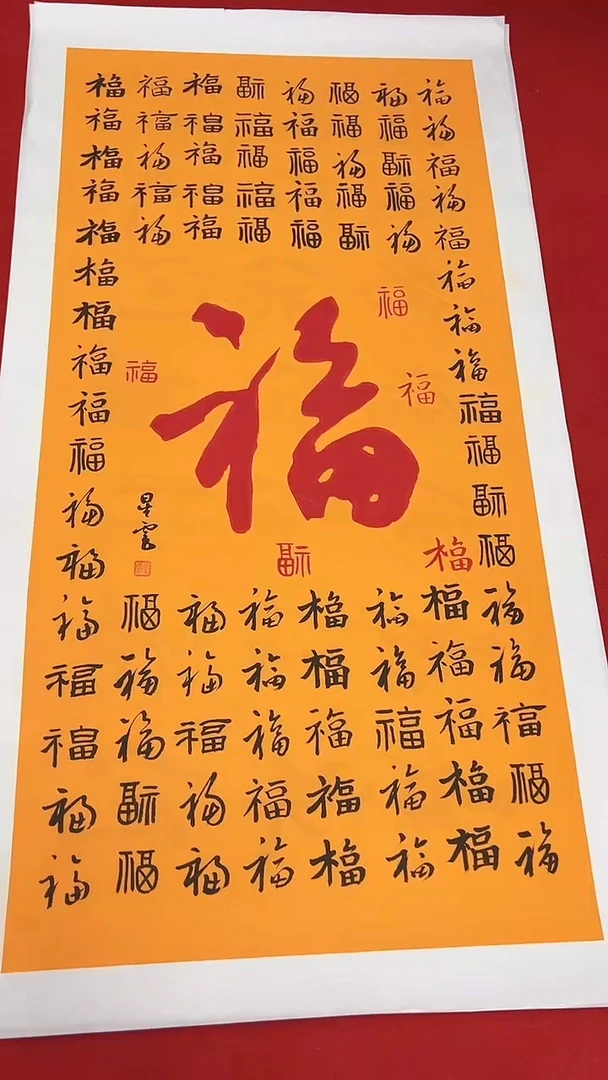 福福福福福福福福
福福福福福福福福
福福福福福福福福
福福福福福福福福
福福福福福福福福
福 福
福 福 福
福 福 福
福 福 福 福
福 福
福 福
星雲
福 福 福 福
福福福福福福福福
福福福福福福福福
福福福福福福福福
福福福福福福福福
福福福福福福福福